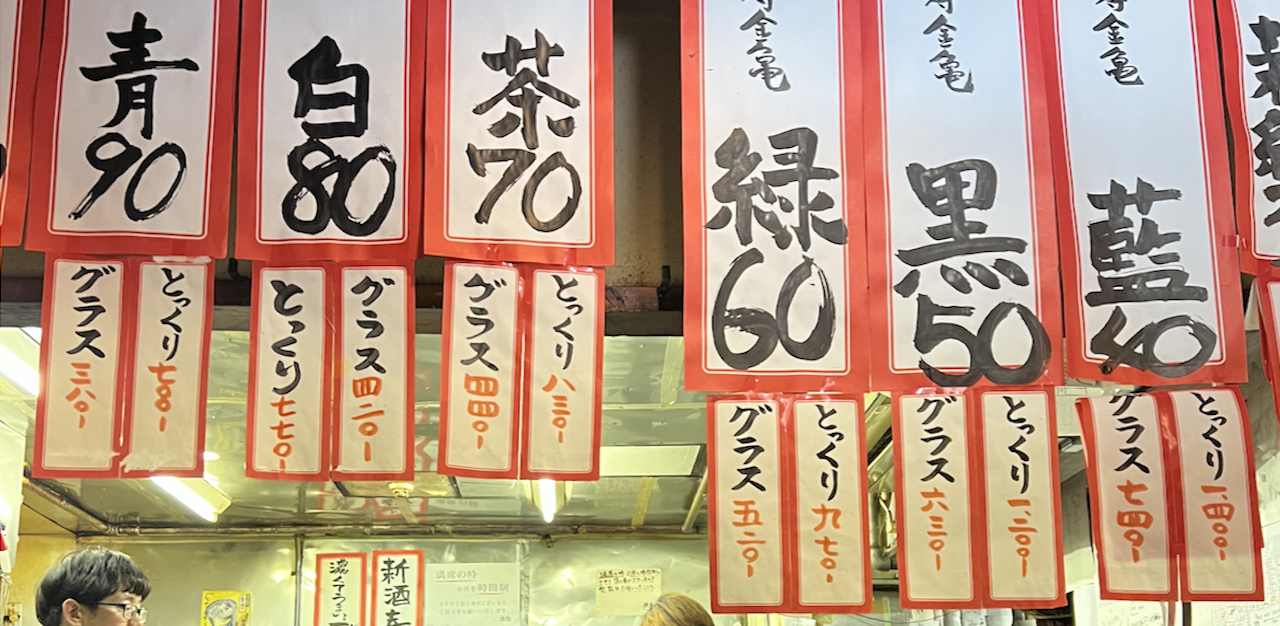 青
90
白
80
茶
70
金亀
緑
60
金亀
黒
50
金亀
藍
40
グラス 三八〇-
とっくり 七〇〇-
とっくり 七七〇-
グラス 四二〇-
グラス 四四〇-
とっくり 八三〇-
グラス 五二〇-
とっくり 九七〇-
グラス 六三〇-
とっくり 一、二〇〇-
グラス 七四〇-
とっくり 一、四〇〇-
濃くてうまい
新酒
満席の時
時間制